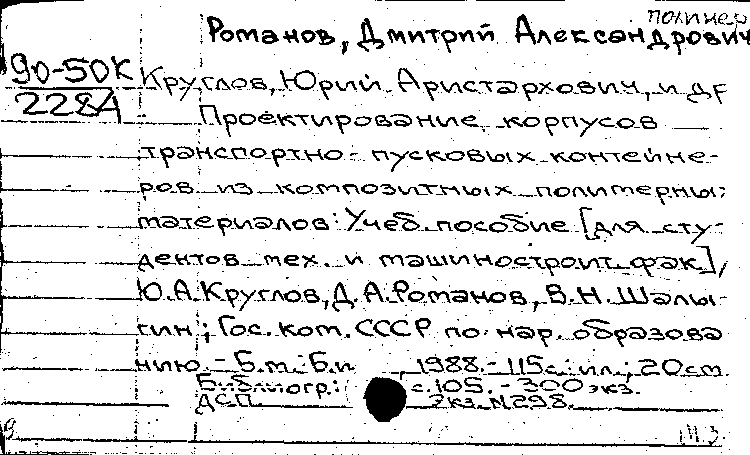 полимер
Романов, Дмитрий Александрович
90-50К
228А
Круглов, Юрий Аристархович, и др
Проектирование корпусов
транспортно-пусковых контейне-
ров из композитных полимерных
материалов: Учеб. пособие [для сту-
дентов мех. и машиностроит. фак.],
Ю.А.Круглов, Д.А.Романов, В.Н.Шалы-
гин; Гос. ком. СССР по нар. образова
нию. - Б.м.: Б.и , 1988. - 115с.: ил.; 20см.
Библиогр.: с.105. - 300 экз.
ДСП. Экз. №298.